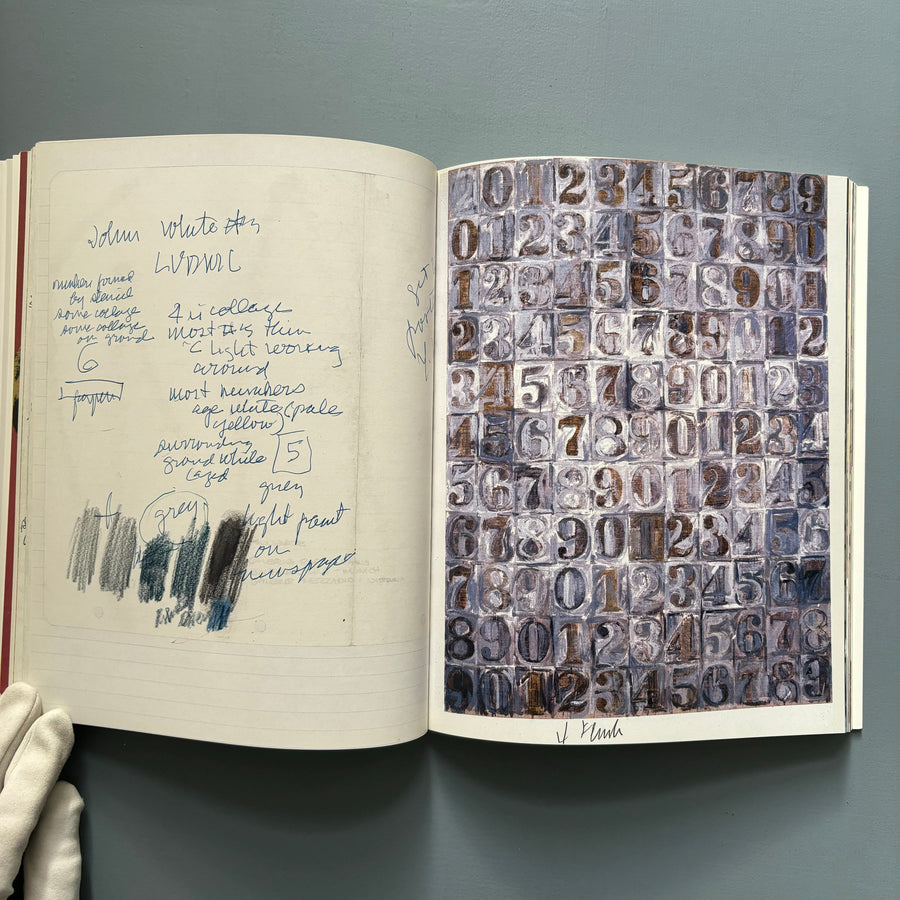 Johns White #s
LVDWIC
numbers formed
by stencil
some collage
some collage
on ground
6
4 is collage
most #s thin
light working
around
most numbers
age white (pale
yellow)
surrounding
ground white
5
grey
grey
light paint
on
newspaper
0 1 2 3 4 5 6 7 8 9
0 1 2 3 4 5 6 7 8 9 0
1 2 3 4 5 6 7 8 9 0 1
2 3 4 5 6 7 8 9 0 1 2
3 4 5 6 7 8 9 0 1 2 3
4 5 6 7 8 9 0 1 2 3 4
5 6 7 8 9 0 1 2 3 4 5
6 7 8 9 0 1 2 3 4 5 6
7 8 9 0 1 2 3 4 5 6 7
8 9 0 1 2 3 4 5 6 7 8
9 0 1 2 3 4 5 6 7 8 9